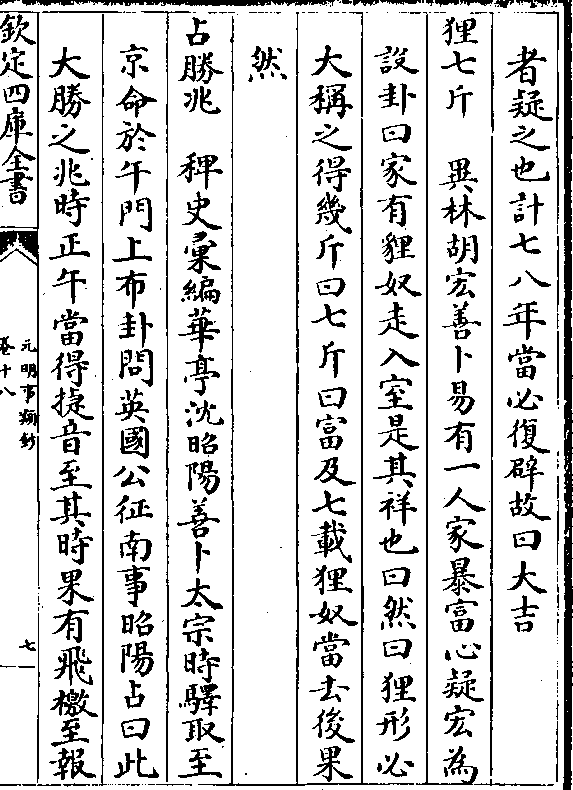 者疑之也計七八年當必復辟故曰大吉
狸七斤　異林胡宏善卜易有一人家暴富心疑宏為
設卦曰家有貍奴走入室是其祥也曰然曰狸形必
大稱之得幾斤曰七斤曰富及七載狸奴當去後果
然
占勝兆　稗史彙編華亭沈昭陽善卜太宗時驛取至
京命於午門上布卦問英國公征南事昭陽占曰此
大勝之兆時正午當得捷音至其時果有飛檄至報
欽定四庫全書
元明事類鈔
卷十八
七